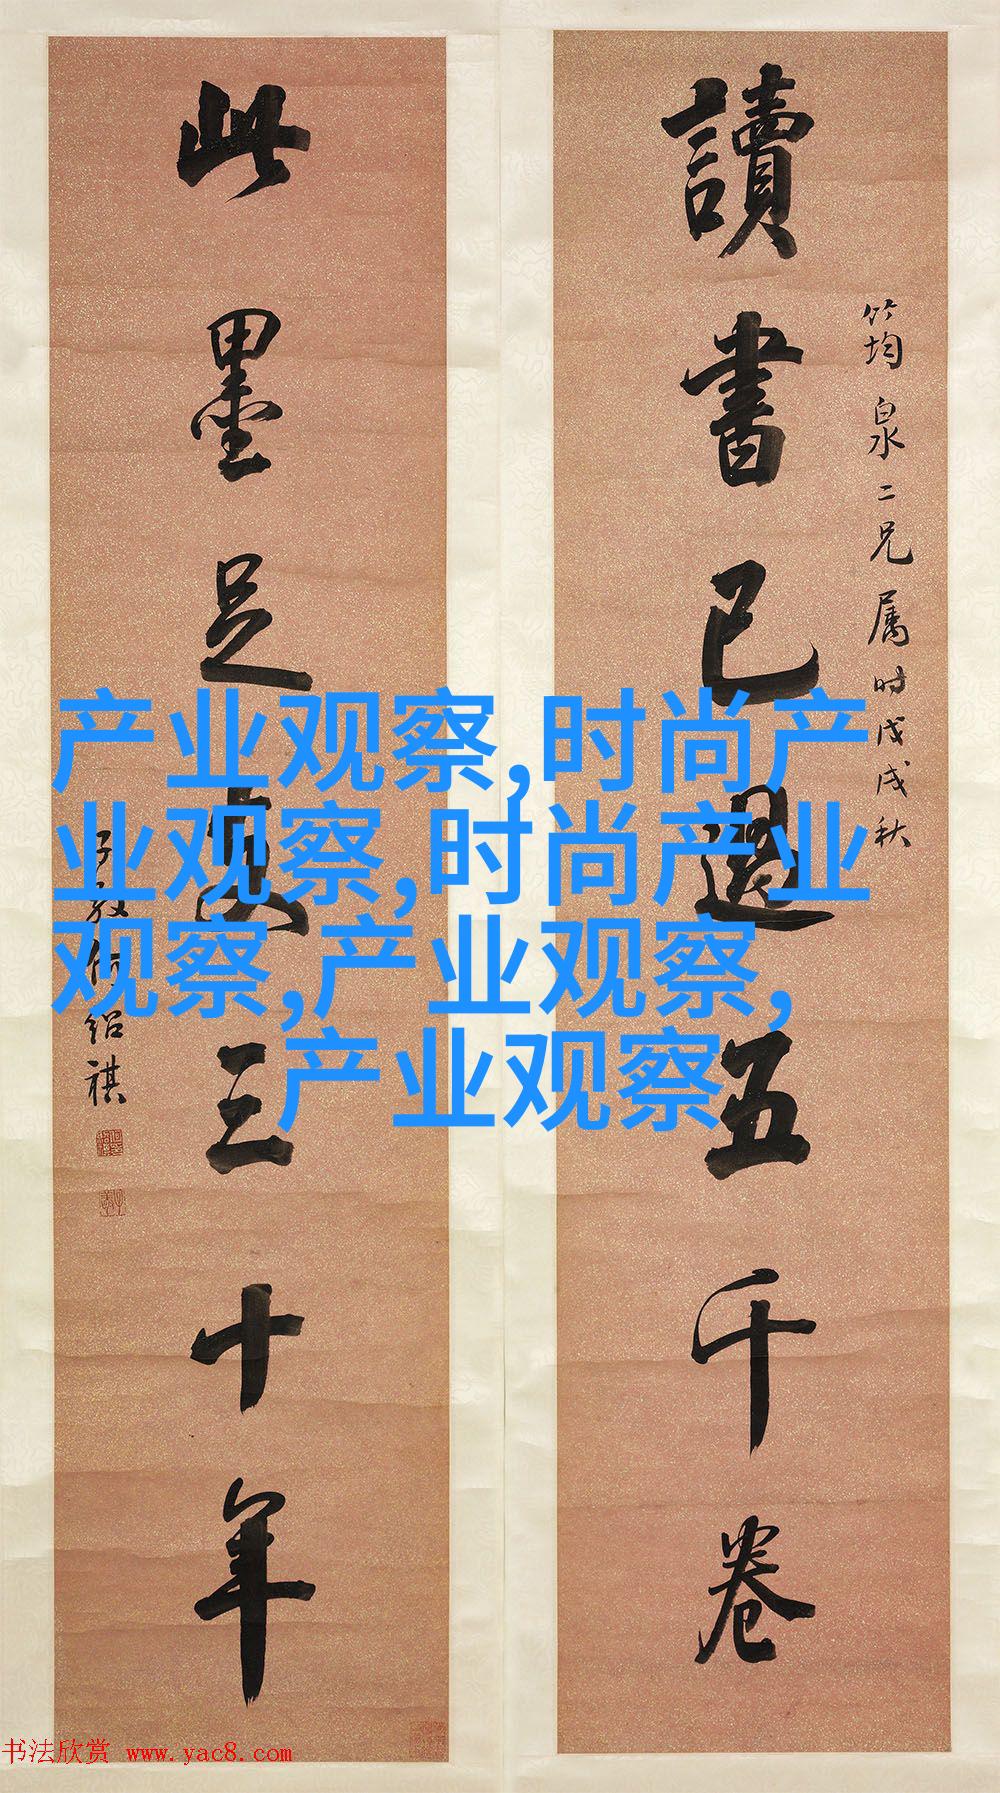 讀書已過五千卷
筠泉二兄属时戊戌秋
此墨足支三十年
子貞何绍祺
产业观察,时尚产
业观察,时尚产业
观察,产业观察,
产业观察
书法欣赏 www.yac8.com